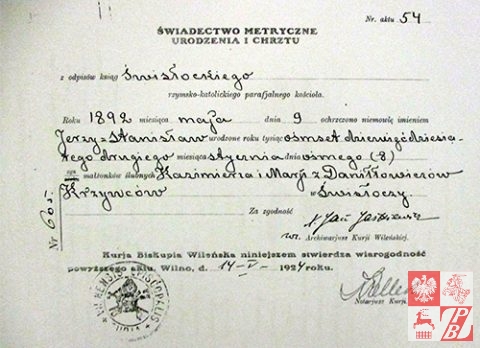 Nr. aktu 54
ŚWIADECTWO METRYCZNE
URODZENIA I CHRZTU
z odpisów ksiąg Świsłockiego
rzymsko-katolickiego parafjalnego kościoła.
Roku 1892 miesiąca maja dnia 9 ochrzczono niemowlę imieniem
Jerzy=Stanisław urodzone roku tysiąc ośmset dziewięćdziesia-
tego drugiego miesiąca stycznia dnia ósmego (8)
syn małżonków ślubnych Kazimierza i Marji z Daniłłowiczów
Krzywców w Świsłoczy.
Za zgodność
wz. Archiwarjusz Kurji Wileńskiej.
Nr 605.
Kurja Biskupia Wileńska niniejszem stwierdza wiarogodność
powyższego aktu, Wilno, d. 14-V- 1924 roku.
Notarjusz Kurji
Z
P
BŁ